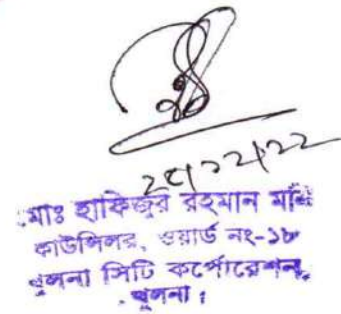 মোঃ হাফিজুর রহমান মনি
কাউন্সিলর, ওয়ার্ড নং-১৮
খুলনা সিটি কর্পোরেশন,
খুলনা।